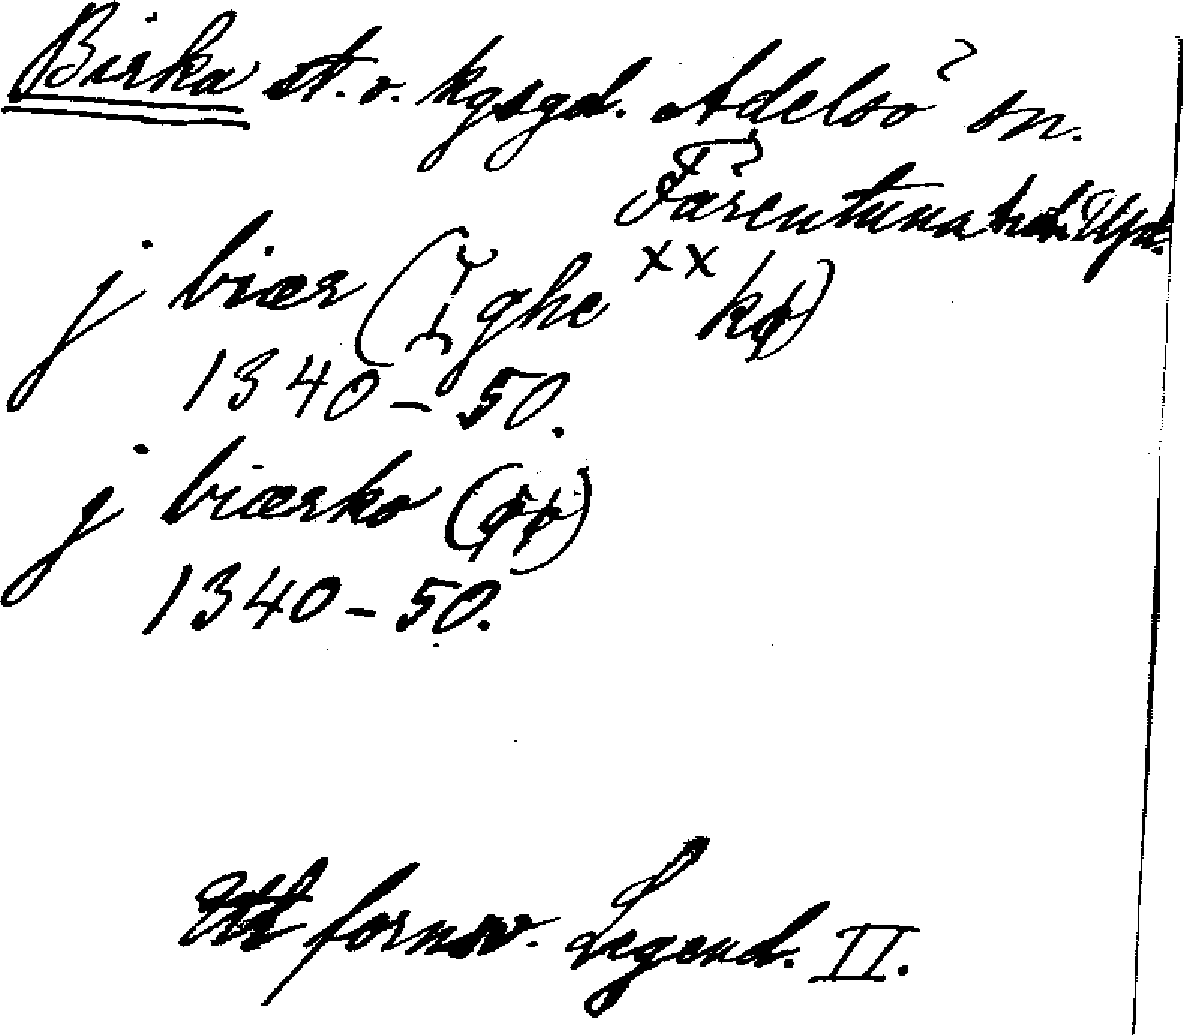 Birka st. o. kgsgd. Adelsö sn.
Färentuna hd. Upl.
j biær (Ighe xx kþ)
1340-50.
j biærko
1340-50.
Ett fornsv. Legend. II.